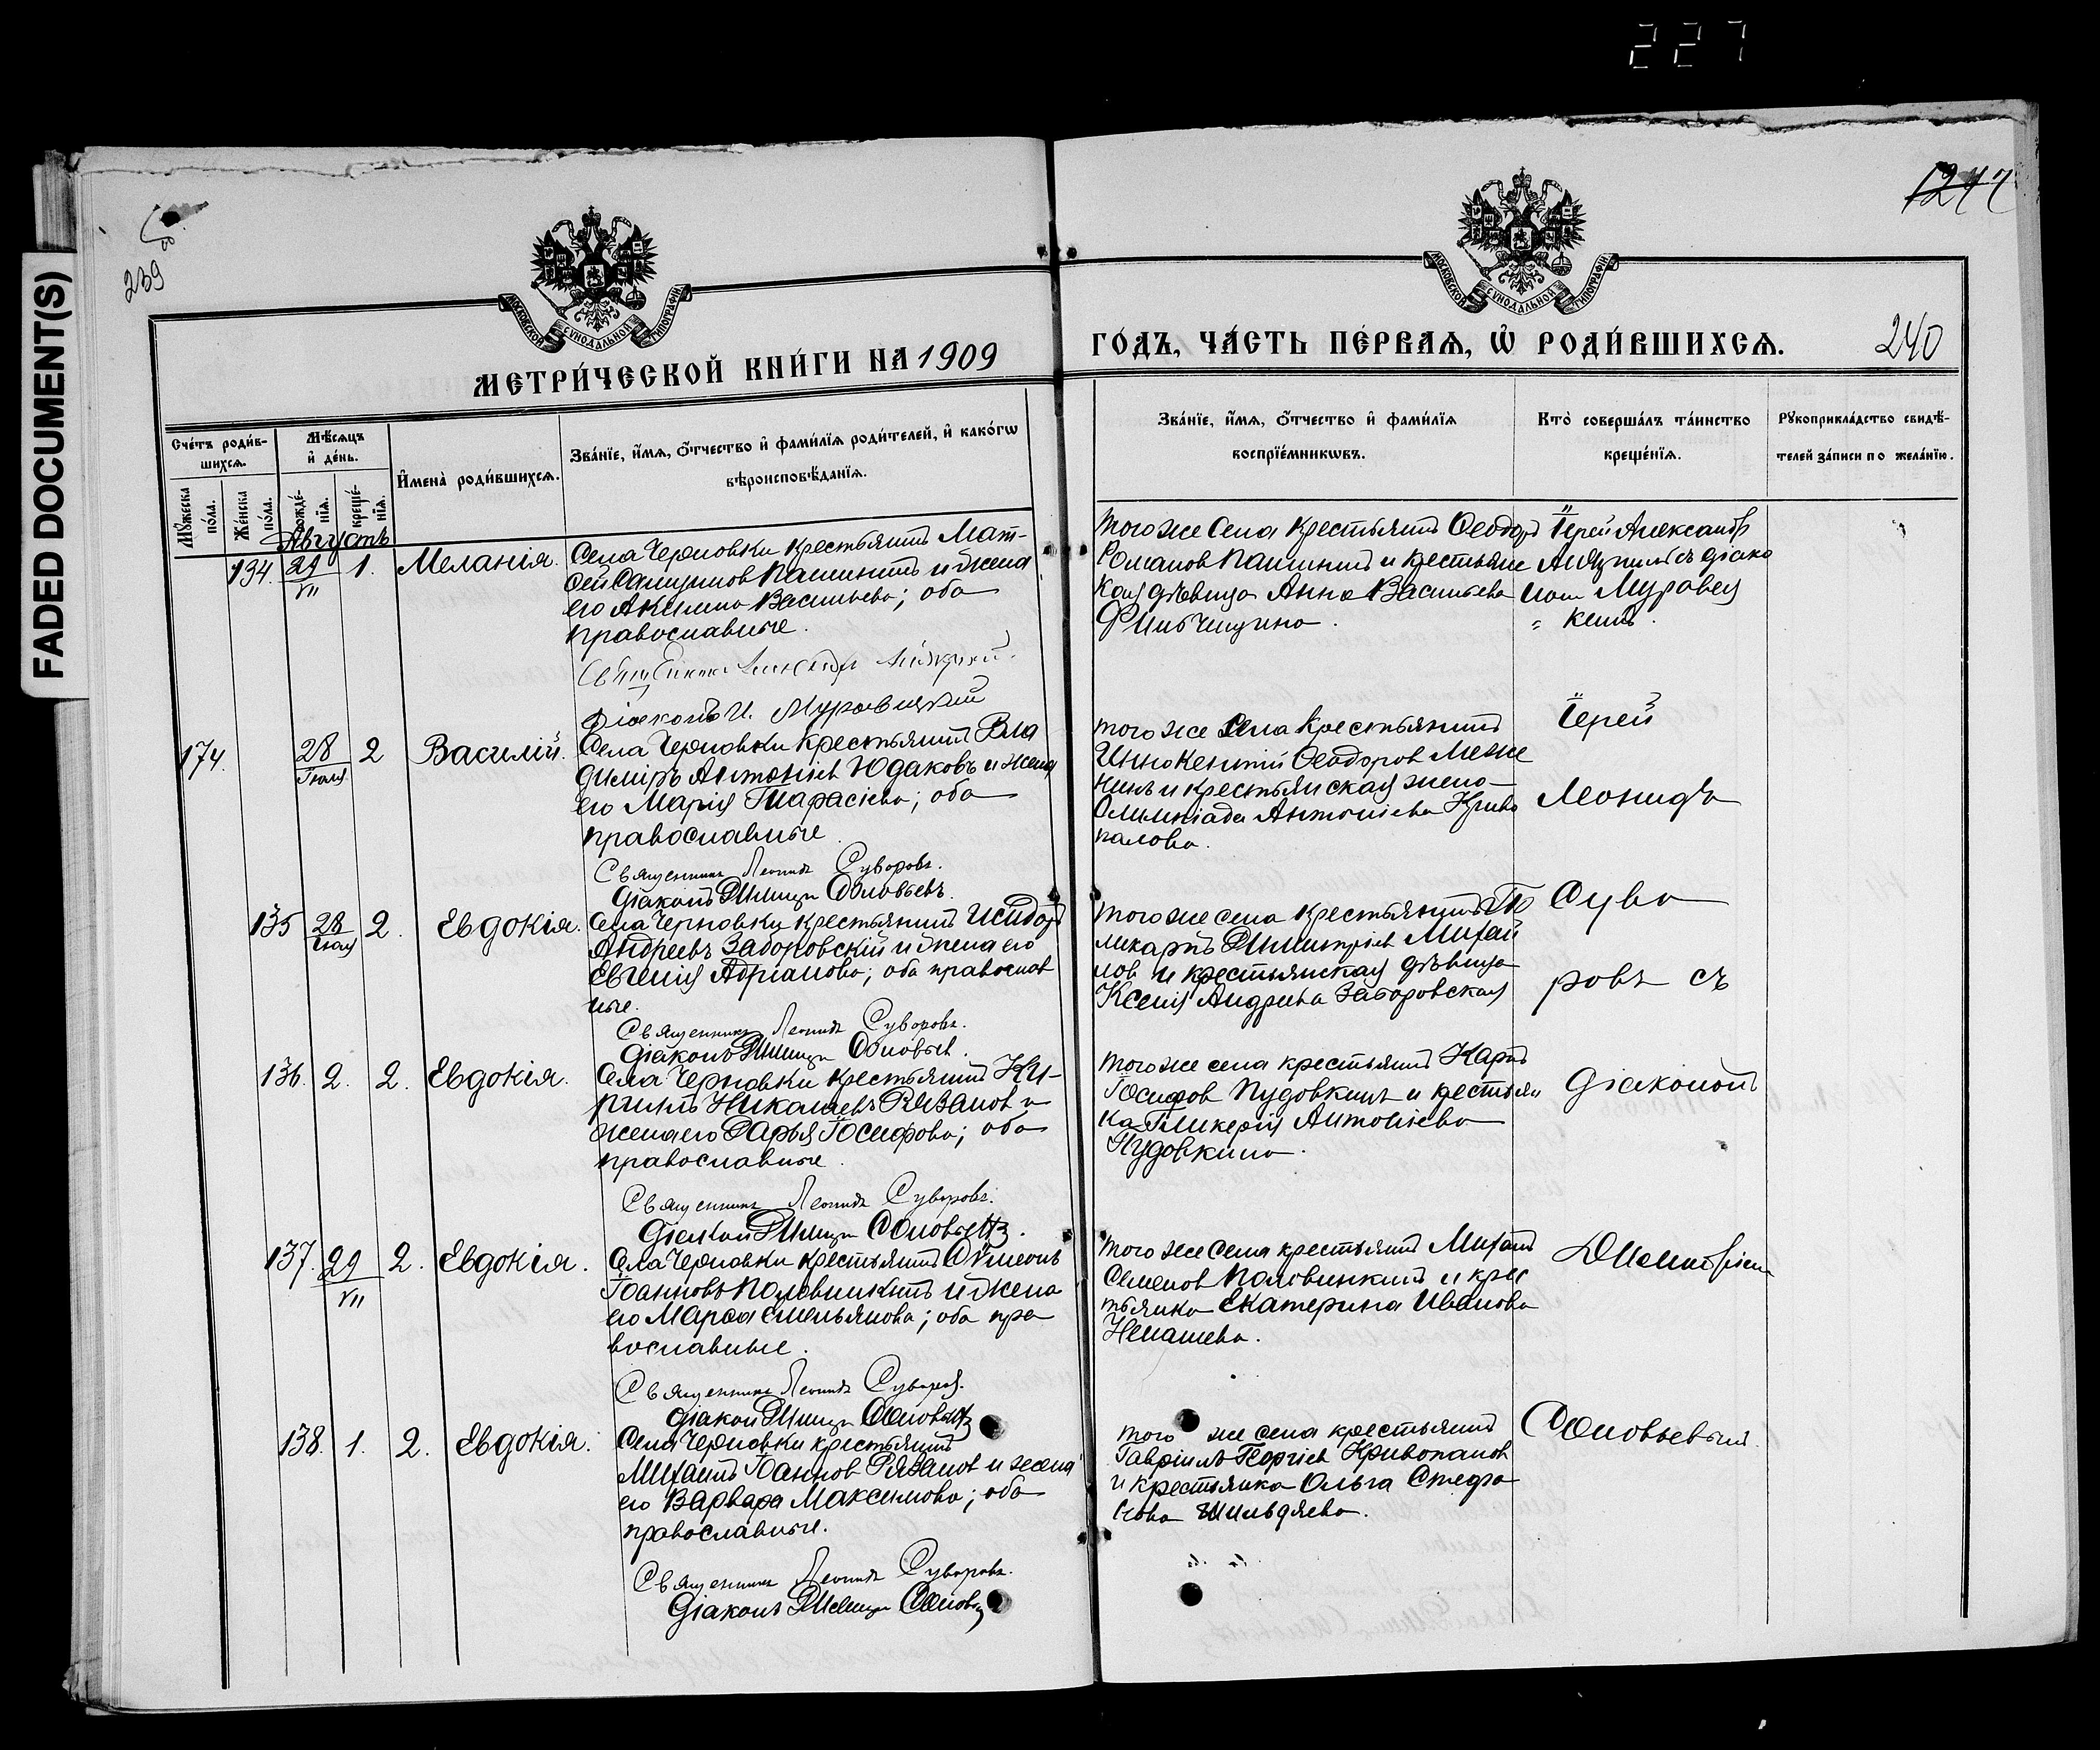 227
FADED DOCUMENT(S)
239
1247
МОСКОВСКОЙ СУНОДАЛЬНОЙ ТИПОГРАФІИ
МОСКОВСКОЙ СУНОДАЛЬНОЙ ТИПОГРАФІИ
МЕТРИ́ЧЕСКОЙ КНИ́ГИ НА 1909
ГО́ДЪ, ЧА́СТЬ ПЕ́РВАѦ, Ѡ҆ РОДИ́ВШИХСѦ.
240
Сче́тъ роди́в-
шихсѧ.
Мѣ́сѧцъ
и҆ де́нь.
И҆мена̀ роди́вшихсѧ.
Зва́нїе, и҆́мѧ, ѻ҆́тчество и҆ фами́лїѧ роди́телей, и҆ како́гѡ
вѣроисповѣ́данїѧ.
Мꙋ́жеска
по́ла.
Же́нска
по́ла.
рожде́-
нїѧ.
креще́-
нїѧ.
Зва́нїе, и҆́мѧ, ѻ҆́тчество и҆ фами́лїѧ
воспрїе́мникѡвъ.
Кто̀ соверша́лъ та́инство
креще́нїѧ.
Рꙋкоприкла́дство свидѣ́-
телей за́писи по жела́нїю.
Августъ
134. 29/VII 1. Меланія.
Села Черновки крестьянинъ Мат-
сей Пашинитъ и жена
его Акилина Васильева; оба
православные.
діаконъ И. Муравицкий
того же села крестьянинъ Ѳеодор
Романов Пашинитъ и крестьянс
кая дѣвица Анна Васильева
Іерей Александр
съ діако
ном Муравец
кимъ.
174. 28/Іюля 2 Василій.
Села Черновки крестьянинъ Вла
димиръ Антоніев Юдаковъ и жена
его Марія Тарасіева; оба
православные.
Священникъ Леонидъ Суворовъ.
Діаконъ Димитри Соловьевъ.
того же села крестьянинъ
Иннокентій Ѳеодоров Меже
нинъ и крестьянская жена
Олимпіада Антоніева Криво
палова.
Іерей
Леонидъ
135 28/Іюля 2. Евдокія.
Села Черновки крестьянинъ Исидоръ
Андреевъ Заборовскій и жена его
Евгенія Адріанова; оба православ
ные.
Священникъ Леонидъ Суворовъ.
Діаконъ Димитри Соловьев.
того же села крестьянинъ По
ликарпъ Димитріев Михай
лов и крестьянская дѣвица
Ксенія Андреева Заборовская
Суво
ровъ съ
136. 2. 2. Евдокія.
Села Черновки крестьянинъ Ки-
риллъ Николаевъ Рязанов и
жена его Дарья Іосифова; оба
православные.
Священникъ Леонидъ Суворовъ.
Діакон Димитри Соловьевъ.
того же села крестьянинъ Карпъ
Іосифов Пудовкинъ и крестьян
ка Гликерія Антоніева
Пудовкина.
діакономъ
137. 29/VII 2. Евдокія.
Села Черновки крестьянинъ Сѵмеонъ
Іоанновъ Половинкинъ и жена
его Марѳа Емельянова; оба пра
вославные.
Священникъ Леонидъ Суворов.
Діакон Димитри Соловьевъ
того же села крестьянинъ Михаилъ
Семенов Половинкинъ и крес
тьянка Екатерина Иванова
Ненашева.
Димитріем
138. 1. 2. Евдокія.
Села Черновки крестьянинъ
Михаилъ Іоаннов Рязанов и жена
его Варвара Максимова; оба
православные.
Священникъ Леонидъ Суворовъ.
Діаконъ Димитри Соловьев
того же села крестьянинъ
Гавріилъ Георгіев Кривопалов
и крестьянка Ольга Стефа
нова Шильдяева.
Соловьевымъ.